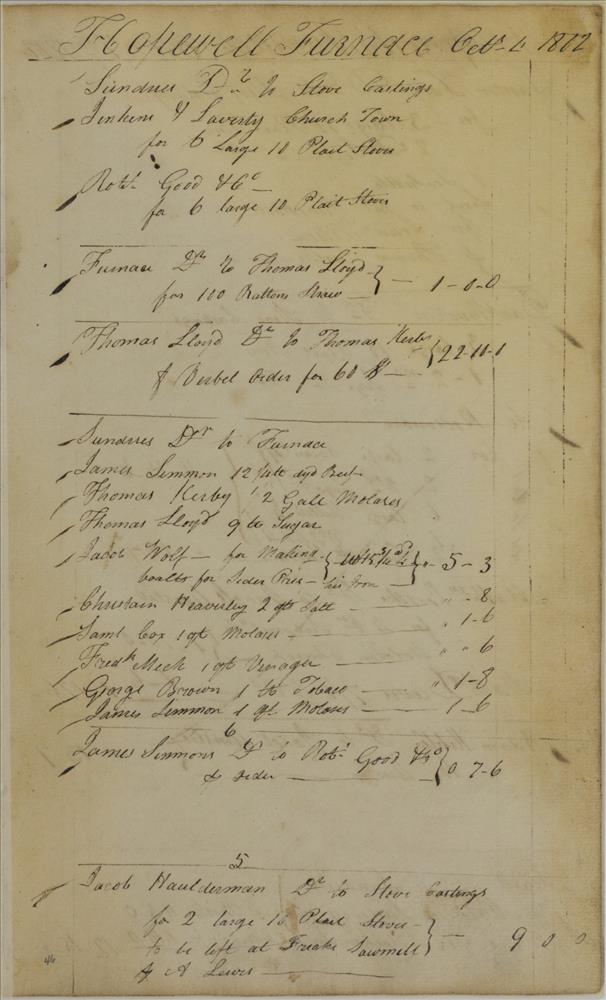 Hopewell Furnace Octr 4 1812
Sundries Dr to Stove Castings
Jenkins & Laverty Church Town
for 6 Large 10 Plait Stoves
Robt Good & Co
for 6 large 10 Plait Stoves
Furnace Dr to Thomas Lloyd
for 100 Straw — 1-0-0
Thomas Lloyd Dr to Thomas Kerby
Verbel order for 60 $ — 22-10-0
Sundries Dr to Furnace
James Simmon 12 Beef
Thomas Kerby 2 Gall Molases
Thomas Lloyd 9 lb Sugar
Jacob Wolf — for Making " - 5 - 3
boalts for Seder Pres — his Iron
Christain Heaverley 2 qts Salt — " - 8
Saml Cox 1 qt Molases — 1-6
Fredk Meck 1 qt Vinager — " " 6
George Brown 1 lb Tobaco — " 1-8
James Simmon 1 qt Molases — 1-6
6
James Simmons Dr to Robt Good & Co 0 7-6
order
5
Jacob Haulderman Dr to Stove Castings
for 2 large 10 Plait Stoves
to be left at Freaks Sawmill — 9 0 0
A Lewis
46